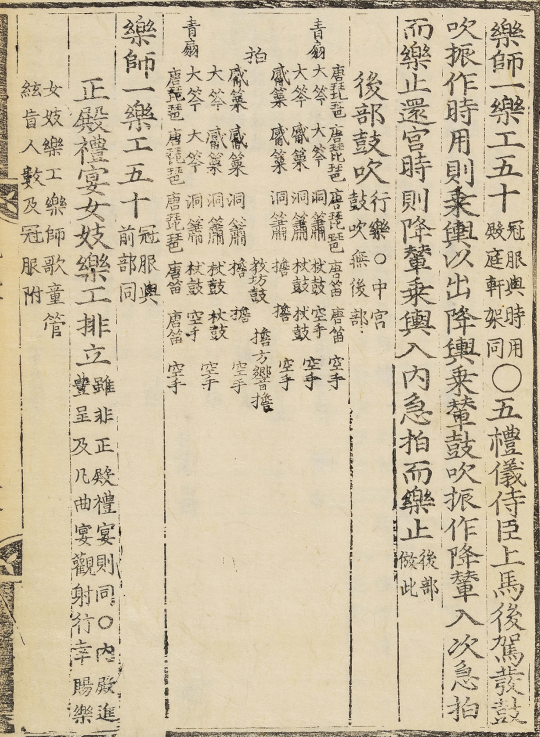 樂師一樂工五十冠服與時用殿庭軒架同○五禮儀侍臣上馬後駕發鼓
吹振作時用則乘輿以出降輿乘輦鼓吹振作降輦入次急拍
而樂止還宮時則降輦乘輿入內急拍而樂止後部倣此
後部鼓吹行樂○中宮鼓吹無後部
唐琵琶 唐琵琶 唐琵琶 唐笛 唐笛 空手
青扇 大笒 大笒 洞簫 杖鼓 空手
大笒 觱篥 洞簫 杖鼓 杖鼓 空手
觱篥 觱篥 洞簫 擔 擔 空手
拍 敎坊鼓 擔 方響 擔
觱篥 觱篥 洞簫 擔 擔 空手
大笒 觱篥 洞簫 杖鼓 杖鼓 空手
青扇 大笒 大笒 洞簫 杖鼓 空手
唐琵琶 唐琵琶 唐琵琶 唐笛 唐笛 空手
樂師一樂工五十冠服與前部同
正殿禮宴女妓樂工排立雖非正殿禮宴則同○內殿進豐呈及凡曲宴觀射行幸賜樂
女妓樂工樂師歌童管
絃盲人數及冠服附